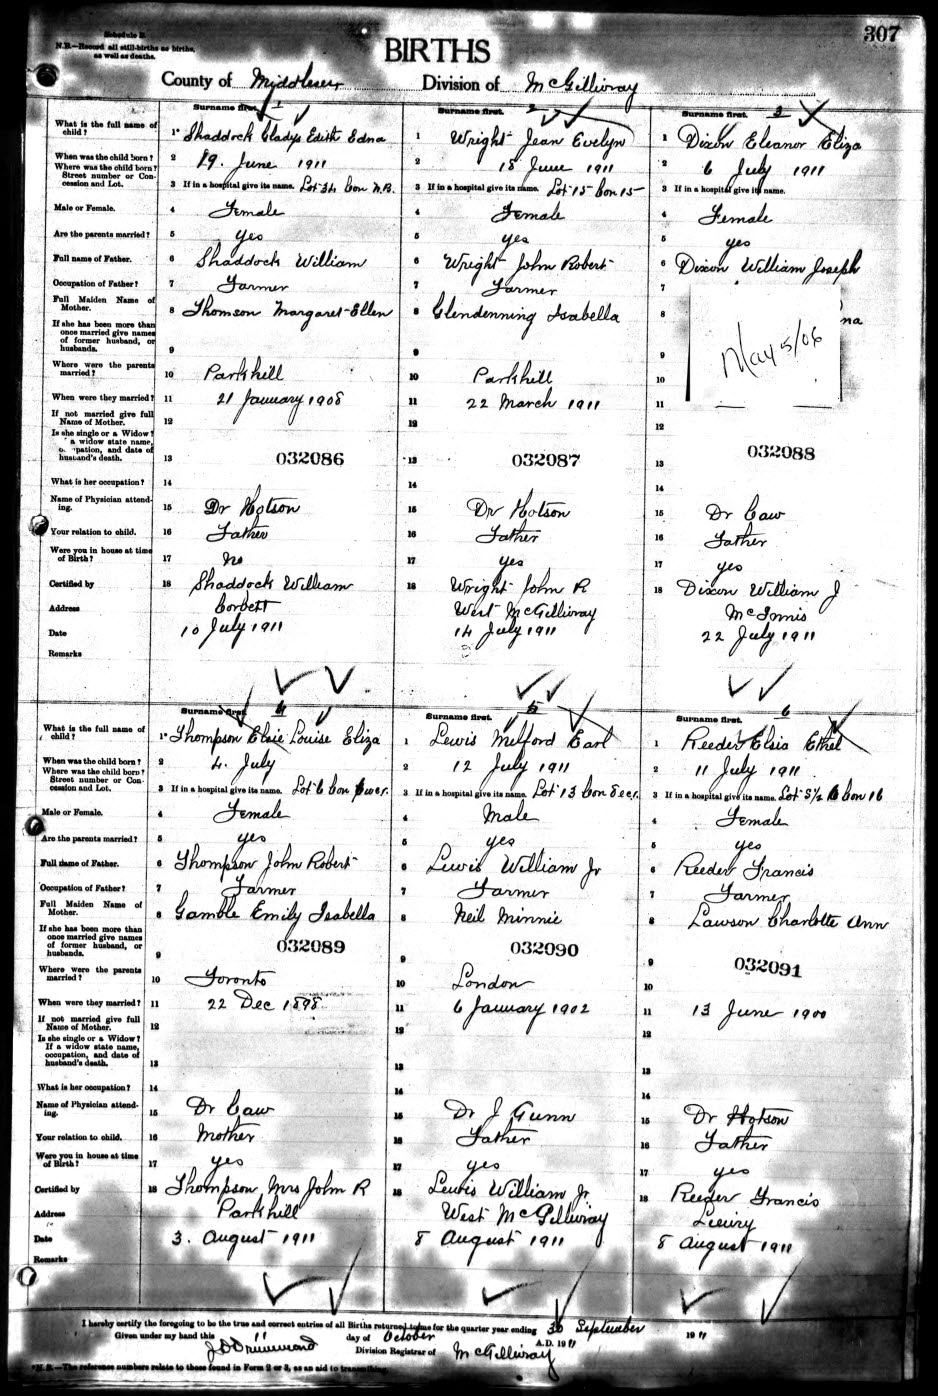 307
Schedule B.
N.B.—Record all still-births as births,
as well as deaths.
BIRTHS
County of Middlesex Division of McGillivray
Surname first. 1 2 Surname first. 3
What is the full name of child? 1* Shaddock Gladys Edith Edna 1 Wright Jean Evelyn 1 Dixon Eleanor Eliza
When was the child born? 2 19. June 1911 2 15 June 1911 2 6 July 1911
Where was the child born? Street number or Concession and Lot. 3 If in a hospital give its name. Lot 34 Con N.B. 3 If in a hospital give its name. Lot 15 Con 15 3 If in a hospital give its name.
Male or Female. 4 Female 4 Female 4 Female
Are the parents married? 5 yes 5 yes 5 yes
Full name of Father. 6 Shaddock William 6 Wright John Robert 6 Dixon William Joseph
Occupation of Father? 7 Farmer 7 Farmer 7
Full Maiden Name of Mother. 8 Thomson Margaret Ellen 8 Glendenning Isabella 8 na
If she has been more than once married give names of former husband, or husbands. 9 9 9
May 5/06
Where were the parents married? 10 Parkhill 10 Parkhill 10
When were they married? 11 21 January 1908 11 22 March 1911 11
If not married give full Name of Mother. 12 12 12
Is she single or a Widow? a widow state name, occupation, and date of husband's death. 13 032086 13 032087 13 032088
What is her occupation? 14 14 14
Name of Physician attending. 15 Dr Hotson 15 Dr Hotson 15 Dr Caw
Your relation to child. 16 Father 16 Father 16 Father
Were you in house at time of Birth? 17 No 17 yes 17 yes
Certified by 18 Shaddock William 18 Wright John R 18 Dixon William J
Address Corbett West McGillivray McInnis
Date 10 July 1911 14 July 1911 22 July 1911
Remarks
Surname first. 4 Surname first. 5 Surname first. 6
What is the full name of child? 1* Thompson Elsie Louise Eliza 1 Lewis Melford Earl 1 Reeder Elsia Ethel
When was the child born? 2 4. July 2 12 July 1911 2 11 July 1911
Where was the child born? Street number or Concession and Lot. 3 If in a hospital give its name. Lot 6 Con 3 If in a hospital give its name. Lot 13 Con 3 If in a hospital give its name. Lot S½ Con 16
Male or Female. 4 Female 4 Male 4 Female
Are the parents married? 5 yes 5 yes 5 yes
Full name of Father. 6 Thompson John Robert 6 Lewis William Jr 6 Reeder Francis
Occupation of Father? 7 Farmer 7 Farmer 7 Farmer
Full Maiden Name of Mother. 8 Gamble Emily Isabella 8 Neil Minnie 8 Lawson Charlotte Ann
If she has been more than once married give names of former husband, or husbands. 9 032089 9 032090 9 032091
Where were the parents married? 10 Toronto 10 London 10
When were they married? 11 22 Dec 1898 11 6 January 1902 11 13 June 1900
If not married give full Name of Mother. 12 12 12
Is she single or a Widow? If a widow state name, occupation, and date of husband's death. 13 13 13
What is her occupation? 14 14 14
Name of Physician attending. 15 Dr Caw 15 Dr J Gunn 15 Dr Hotson
Your relation to child. 16 Mother 16 Father 16 Father
Were you in house at time of Birth? 17 yes 17 yes 17 yes
Certified by 18 Thompson Mrs John R 18 Lewis William Jr. 18 Reeder Francis
Address Parkhill West McGillivray Lieury
Date 3. August 1911 8 August 1911 8 August 1911
Remarks
I hereby certify the foregoing to be the true and correct entries of all Births returned to me for the quarter year ending 30 September 1911
Given under my hand this 11 day of October A.D. 1911
J D Drummond Division Registrar of McGillivray
*N.B.—The reference numbers relate to those found in Form 2 or 3, as an aid to transcribing.